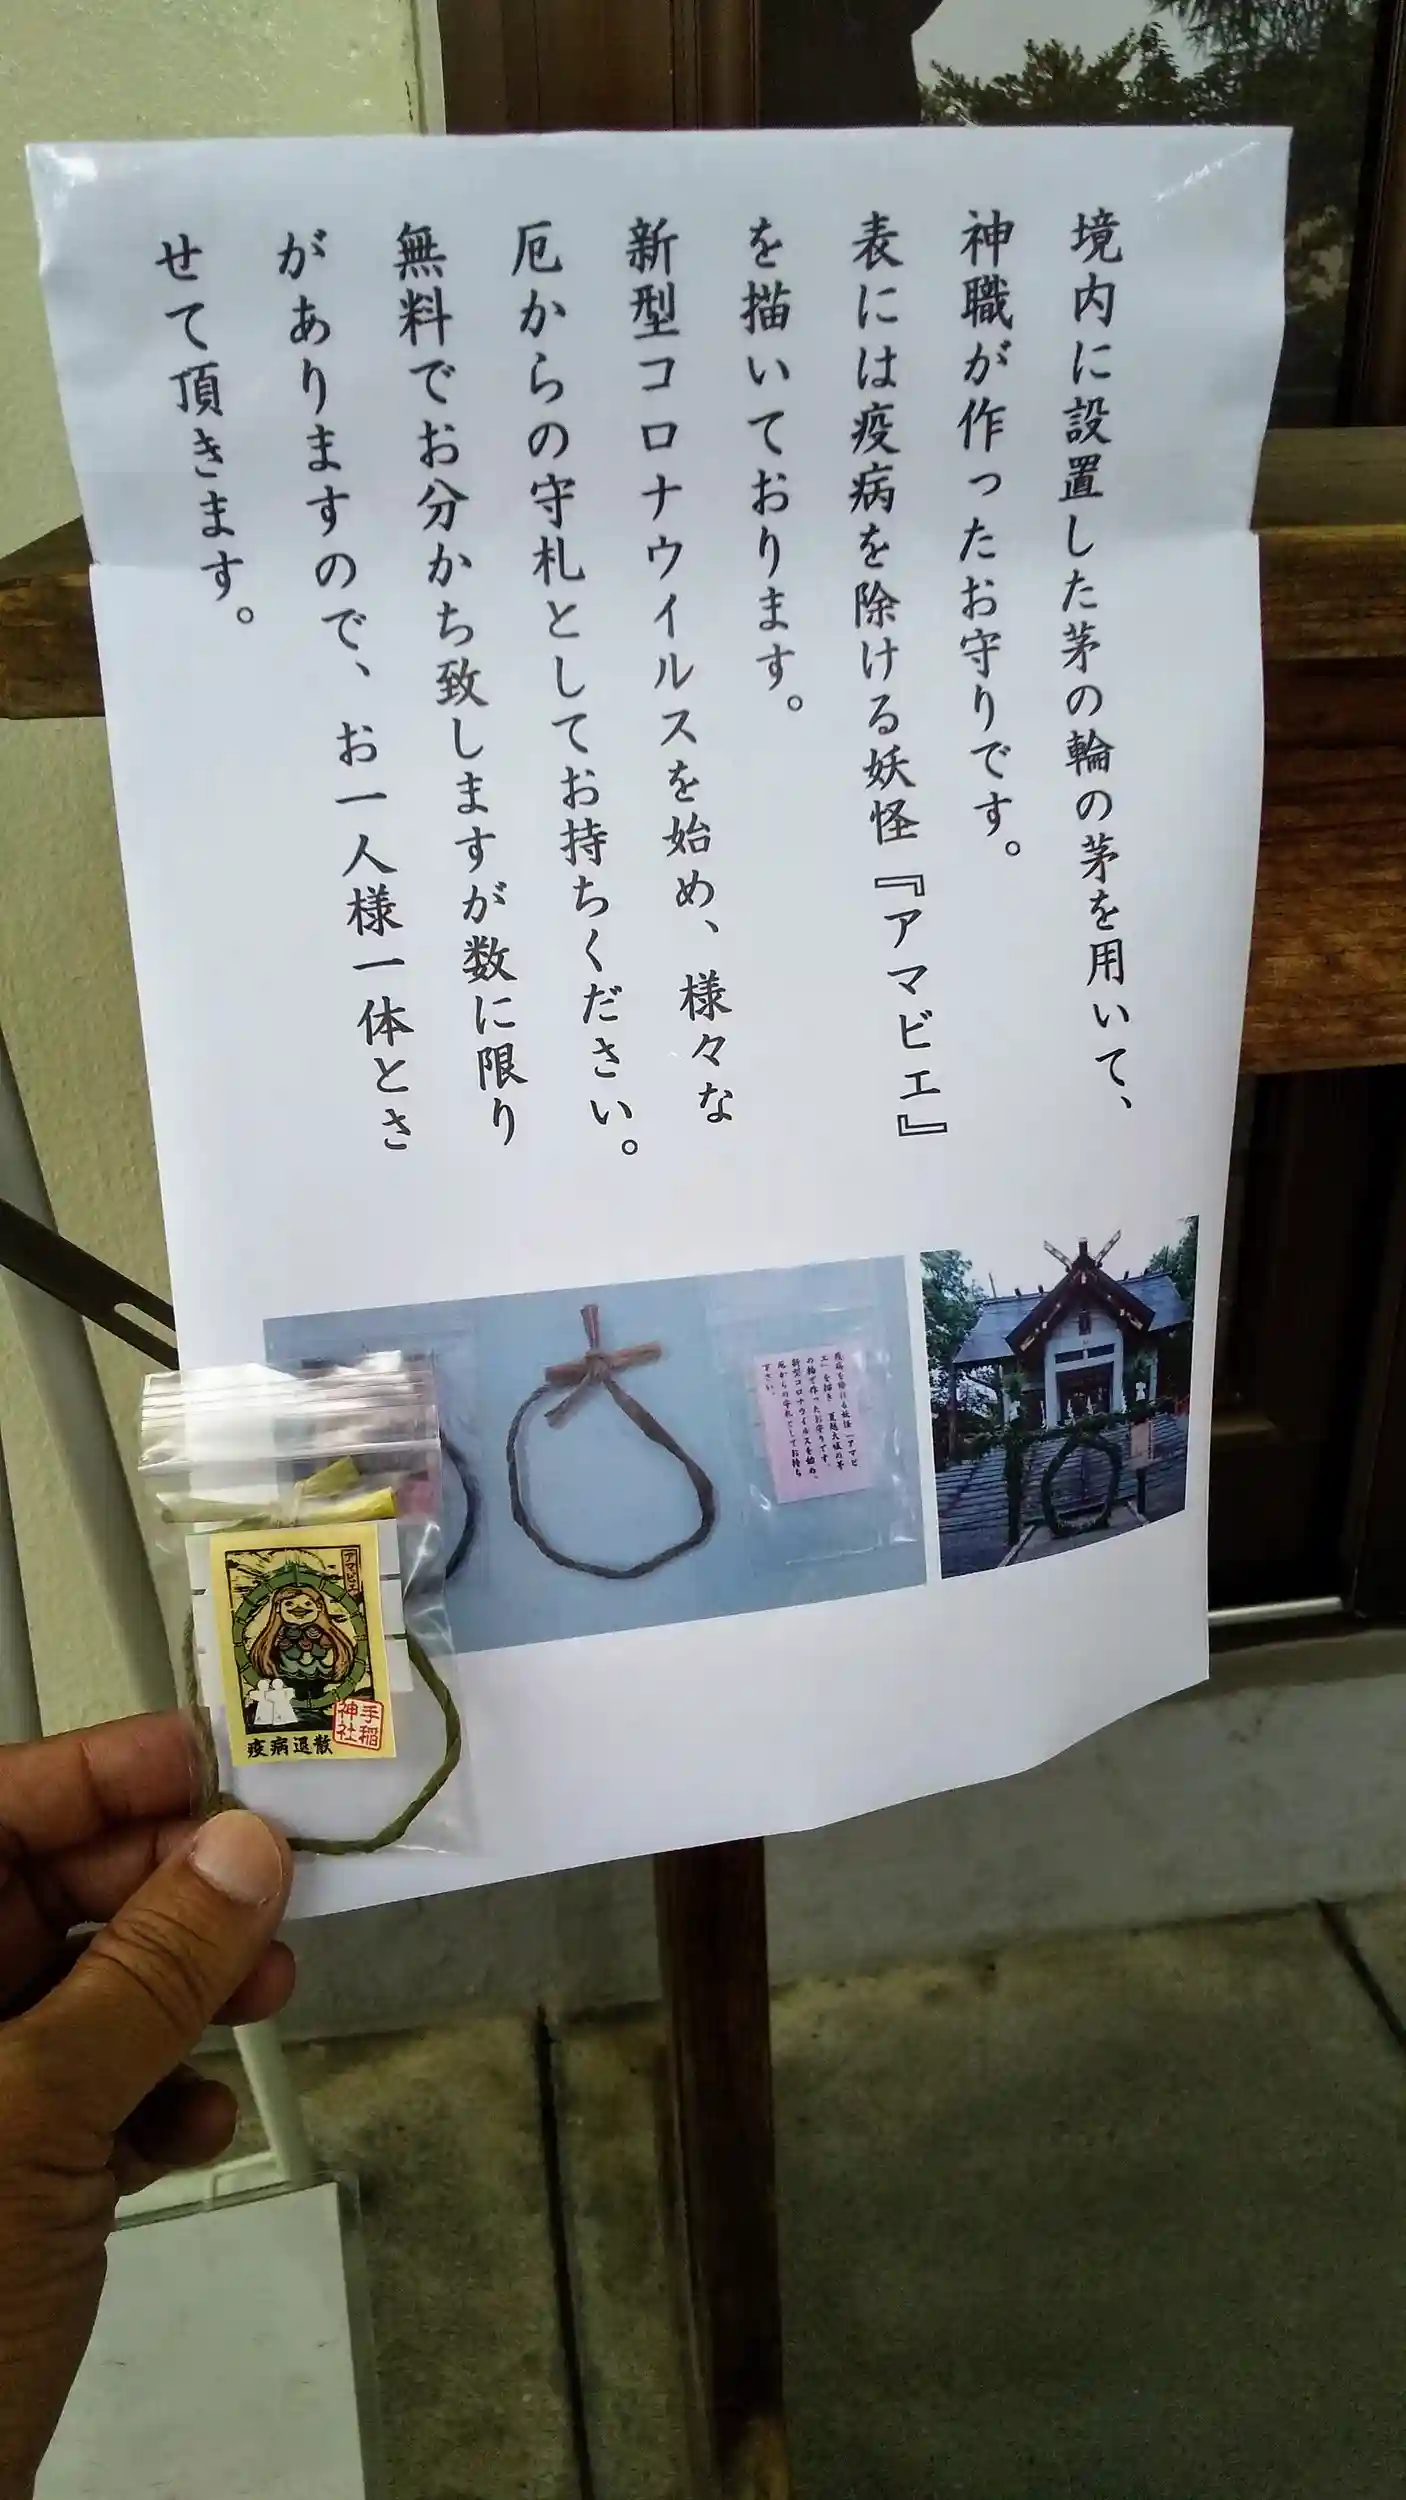 境内に設置した茅の輪の茅を用いて、
神職が作ったお守りです。
表には疫病を除ける妖怪『アマビエ』
を描いております。
新型コロナウイルスを始め、様々な
厄からの守札としてお持ちください。
無料でお分かち致しますが数に限り
がありますので、お一人様一体とさ
せて頂きます。
疫病を除ける妖怪「アマビ
エ」を描き、夏越大祓の茅
の輪で作ったお守りです。
新型コロナウイルスを始め、
厄からの守札としてお持ち
下さい。
アマビエ
手稲
神社
疫病退散